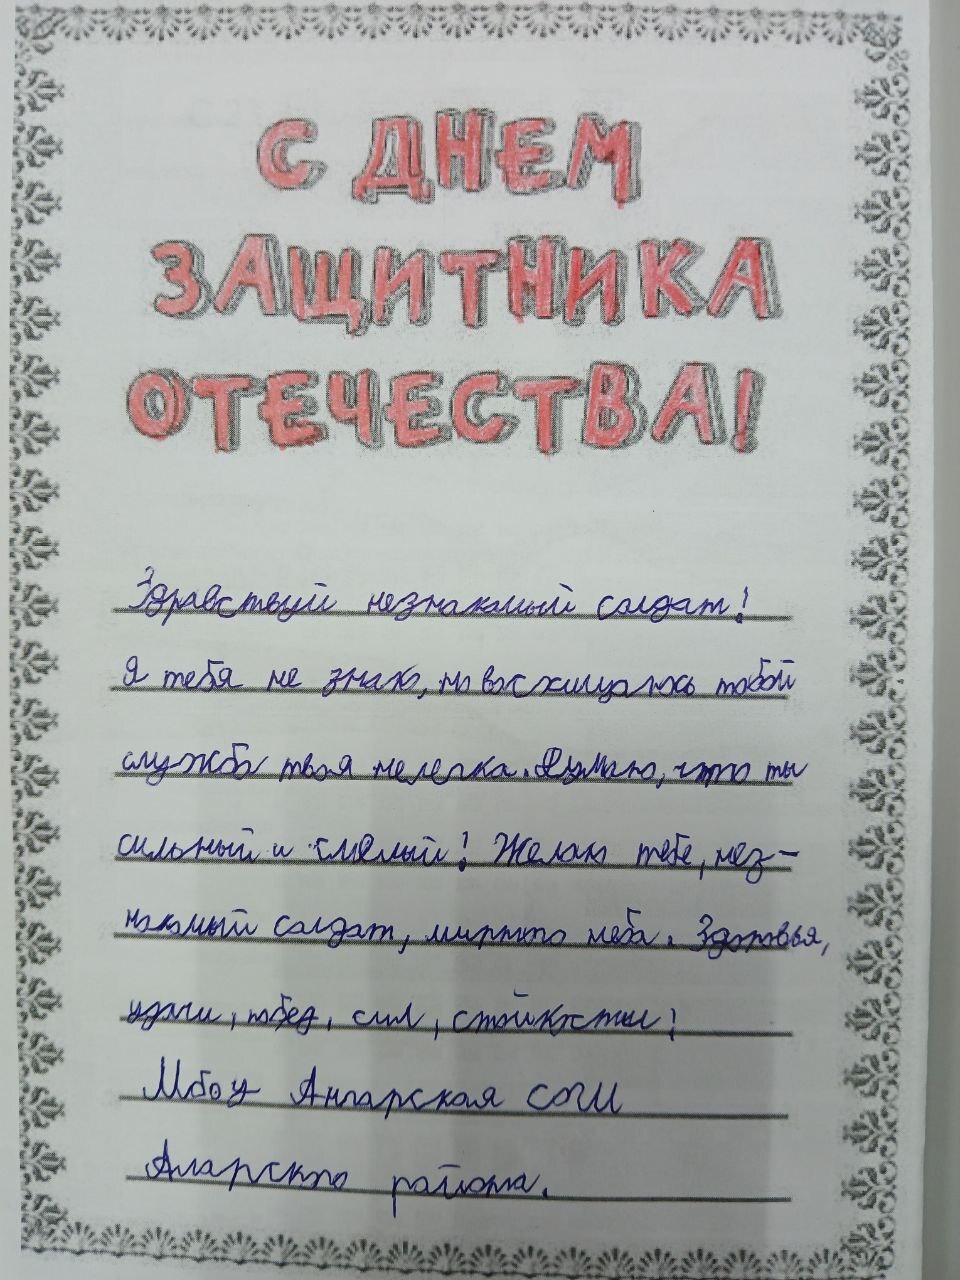 С ДНЕМ
ЗАЩИТНИКА
ОТЕЧЕСТВА!
Здравствуй незнакомый солдат!
Я тебя не знаю, но восхищаюсь тобой
служба твоя нелегка. Думаю, что ты
сильный и смелый! Желаю тебе, нез-
накомый солдат, мирного неба. Здоровья,
удачи, побед, сил, стойкости!
Мбоу Ангарская СОШ
Аларского района.